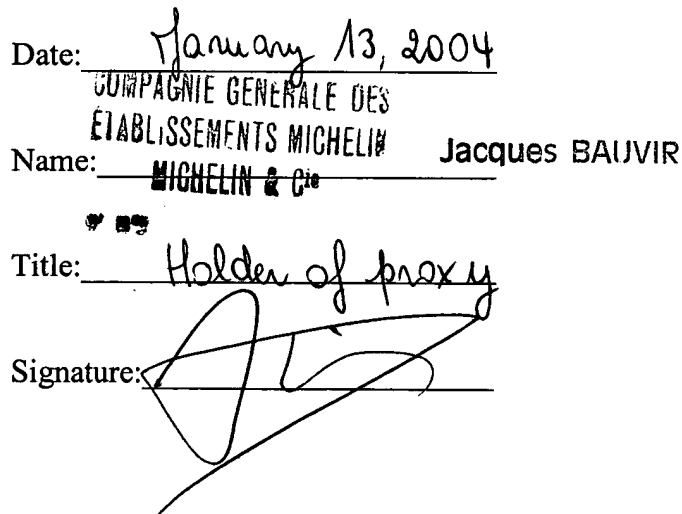 Date: January 13, 2004
COMPAGNIE GENERALE DES
ÉTABLISSEMENTS MICHELIN
Name: MICHELIN & Cie Jacques BAUVIR
Title: Holder of proxy
Signature: